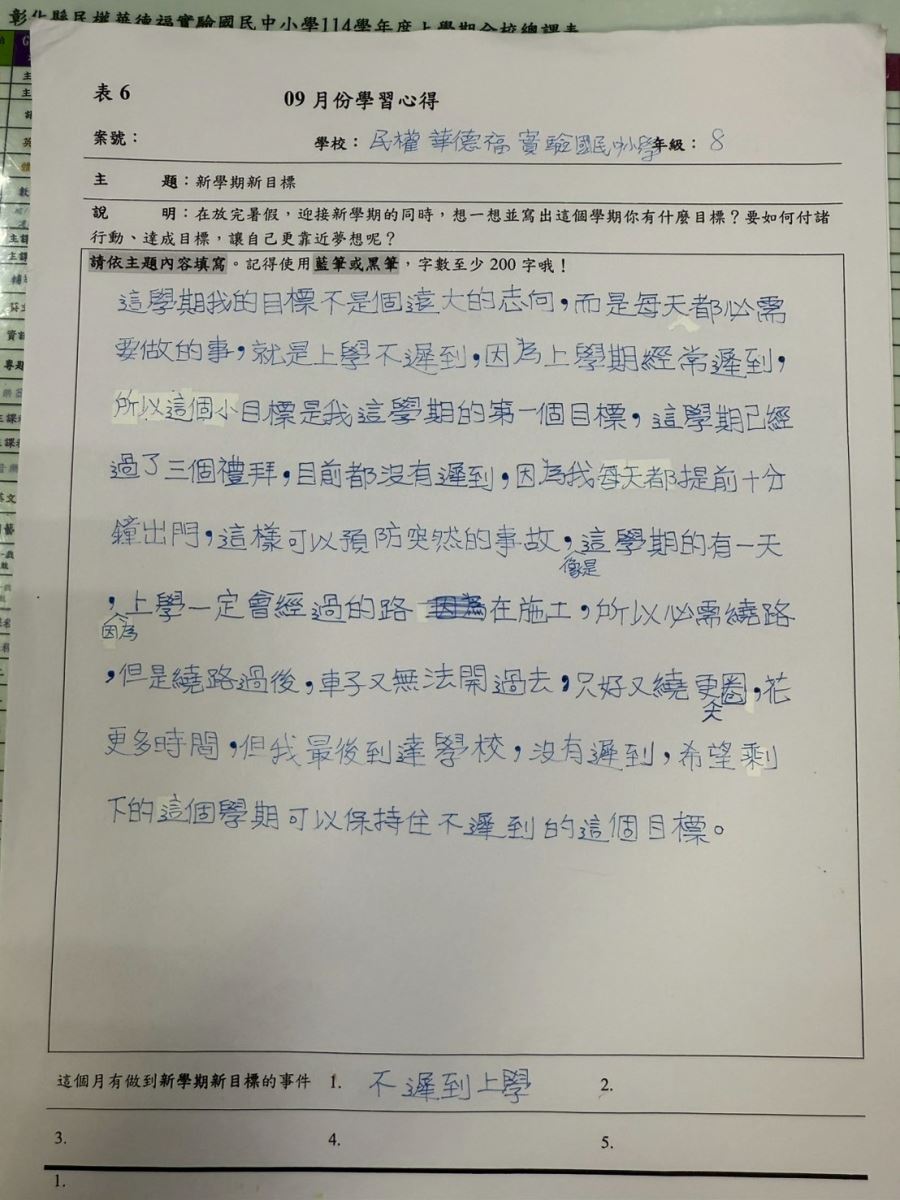 彰化縣民權華德福實驗國民中小學114學年度上學期全校總課表
表 6
09 月份學習心得
案號：
學校：民權華德福實驗國民中小學
年級：8
主 題：新學期新目標
說 明：在放完暑假，迎接新學期的同時，想一想並寫出這個學期你有什麼目標？要如何付諸
行動、達成目標，讓自己更靠近夢想呢？
請依主題內容填寫。記得使用藍筆或黑筆，字數至少 200 字哦！
這學期我的目標不是個遠大的志向，而是每天都必需
要做的事，就是上學不遲到，因為上學期經常遲到，
所以這個小目標是我這學期的第一個目標，這學期已經
過了三個禮拜，目前都沒有遲到，因為我每天都提前十分
鐘出門，這樣可以預防突然的事故，像是這學期的有一天
，因為上學一定會經過的路在施工，所以必需繞路
，但是繞路過後，車子又無法開過去，只好又繞更大圈，花
更多時間，但我最後到達學校，沒有遲到，希望剩
下的這個學期可以保持住不遲到的這個目標。
這個月有做到新學期新目標的事件 1. 不遲到上學 2.
3. 4. 5.
1.